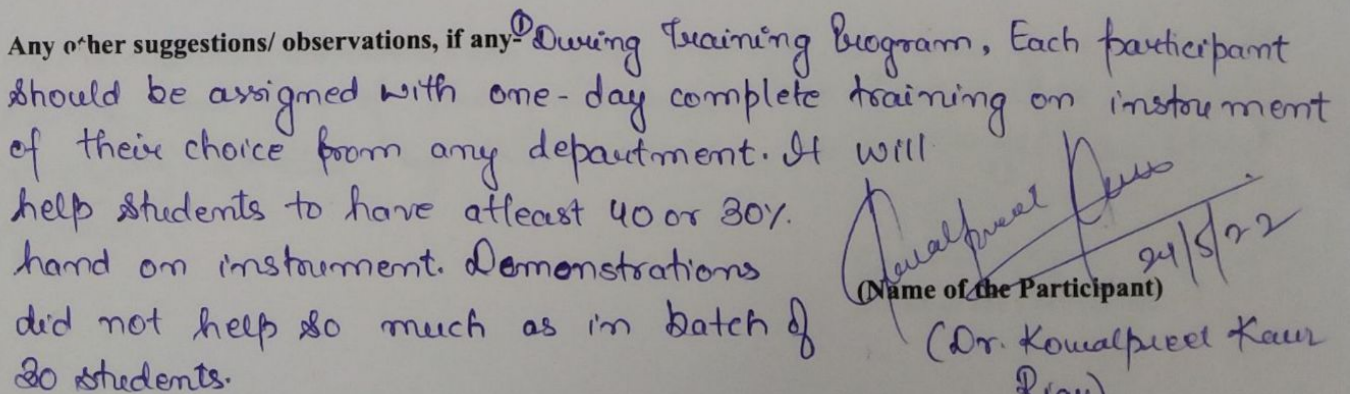 Any other suggestions/ observations, if any- ① During Training Program, Each participant
should be assigned with one-day complete training on instrument
of their choice from any department. It will
help students to have atleast 40 or 30%
hand on instrument. Demonstrations
did not help so much as in batch of
30 students.
Kowalpreet Kaur
24/5/22
(Name of the Participant)
(Dr. Kowalpreet Kaur